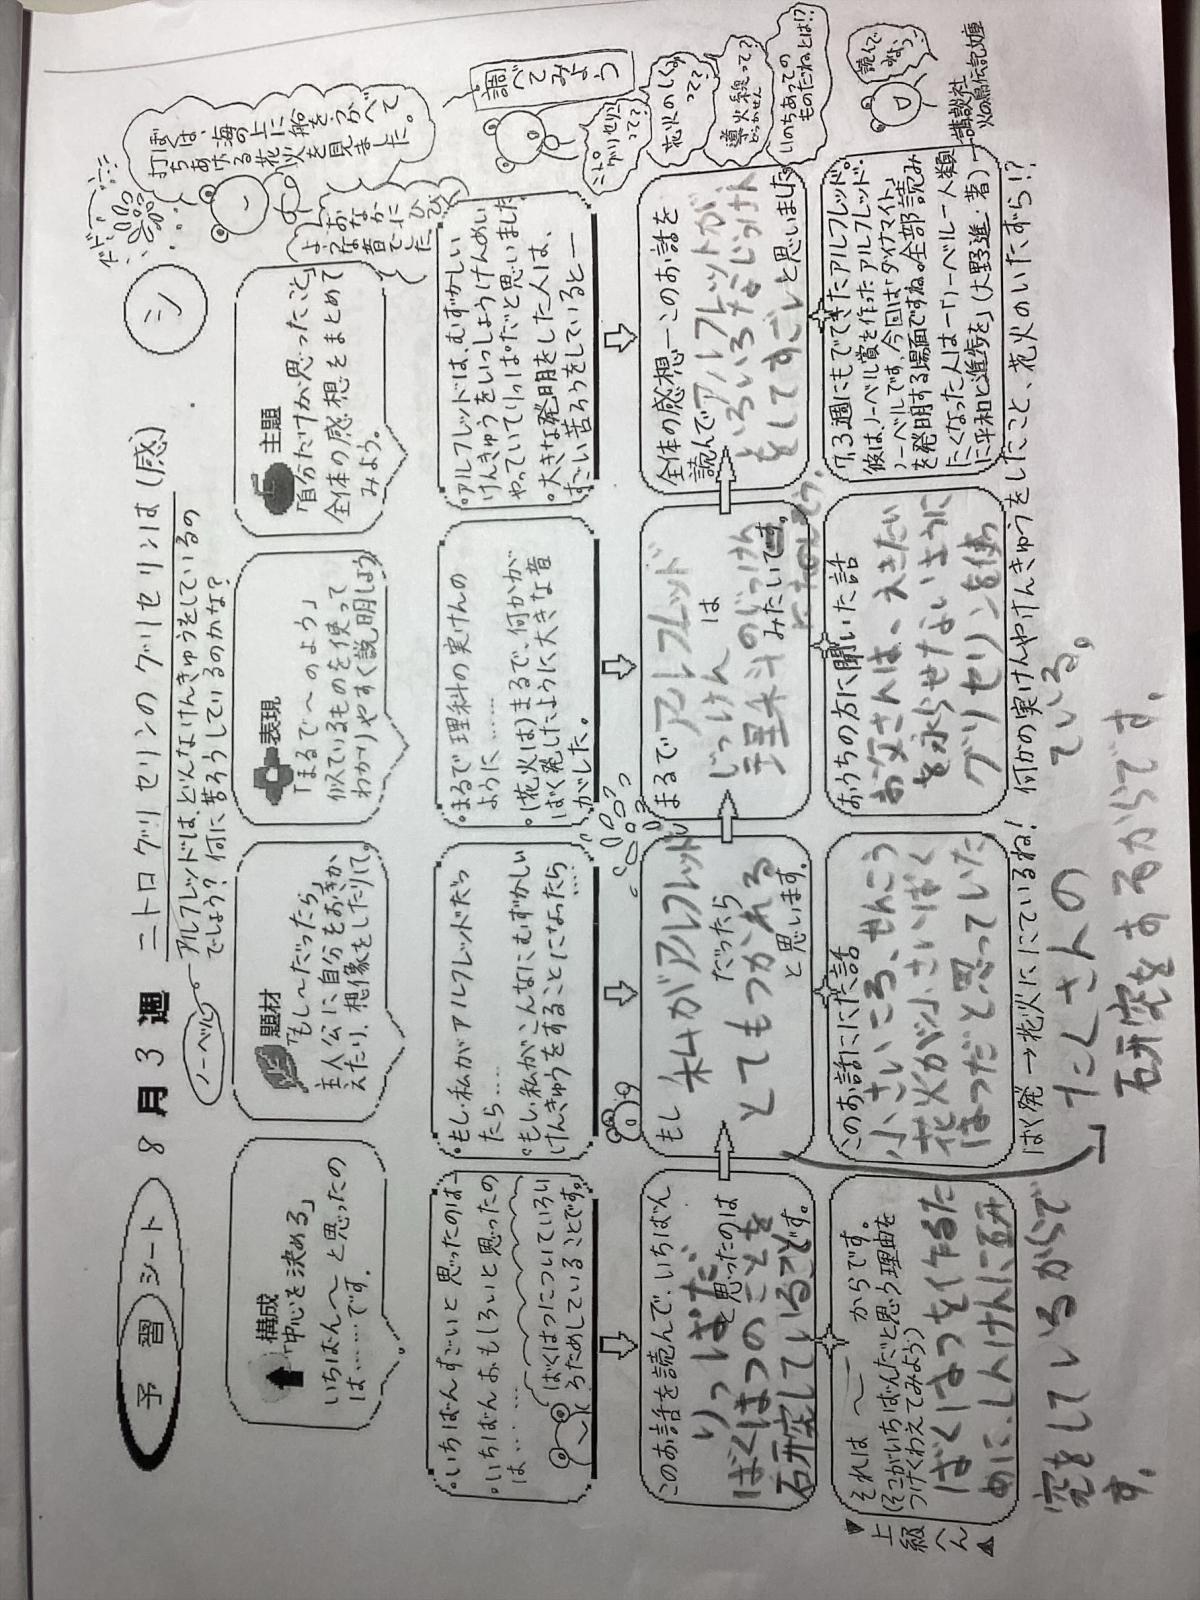 予習シート
8月3週
ニトログリセリンのグリセリンは(感)
シ
ノーベル
アルフレッドは、どんなけんきゅうをしているの
でしょう?何に苦ろうしているのかな?
ドドーン
ぼくは、海の上に
打ちあげる花火を見ました。
おなかにひびく
ような音でした
構成
「中心を決める」
いちばん〜と思ったの
は……です。
題材
「もし〜だったら」
主人公に自分をおきか
えたり、想像をしたりして。
表現
「まるで〜のよう」
似ているものを使って
わかりやすく説明しよう
主題
「自分だけが思ったこと」
全体の感想をまとめて
みよう。
調べてみよう
•いちばんすごいと思ったのは…
•いちばんおもしろいと思ったの
は……
ばくはつについていろい
ろためしていることです。
•もし、私がアルフレッドだっ
たら……
•もし、私がこんなにむずかしい
けんきゅうをすることになったら…!
•まるで理科の実けんの
ように……
•(花火は)まるで、何かが
ばく発したように大きな音
がした。
•アルフレッドは、むずかしい
けんきゅうをいっしょうけんめい
やっていてりっぱだと思いました
•大きな発明をした人は、
すごい苦ろうをしていると―
ニトログリセリンって?
花火のしくみって?
導火線って?
どうかせん
いのちあっての
ものだねとは!?
このお話を読んで、いちばん
りっぱだ
と思ったのは
ばくはつのことを
研究していること
です。
もし
私がアルフレッド
だったら
とてもつかれる
と思います。
まるで
アルフレッド
は
じっけん
理科のじっけん
みたいです。
全体の感想―このお話を
読んで
アルフレットが
いろいろなじっけん
をしてすごい
と思いました
読んでみよう
▼上級へん▲
それは〜からです。
(そこがいちばんだと思う理由を
つけくわえてみよう)
ばくはつを作るた
めに、しんけんに研
究をしているからで
す。
このお話ににた話
小さいころ、せんこう
花火が小さいばく
はつだと思っていた
ばく発→花火ににているね!
おうちの方に聞いた話
お父さんは、えきたい
を氷らせないように
グリセリンを使っ
ている。
何かの実けんやけんきゅうをしたこと、花火のいたずら!?
7.3週にもでてきたアルフレッド。
彼は、ノーベル賞を作ったアルフレッド・
ノーベルです。今回は「ダイナマイト」
を発明する場面ですね。全部読み
たくなった人は―「ノーベル―人類
に平和と進歩を」(大野進・著)―講談社
火の鳥伝記文庫
たくさんの
研究をするからです。